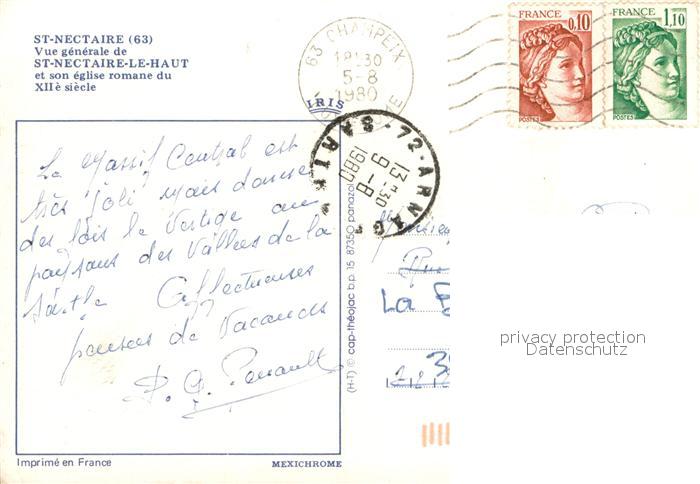 ST-NECTAIRE (63)
Vue générale de
ST-NECTAIRE-LE-HAUT
et son église romane du
XIIè siècle
63 CHAMPEIX
18H30
5-8
1980
FRANCE
0,10
POSTES
FRANCE
1,10
POSTES
IRIS
72-ARNAGE
SARTHE
13H30
6-8
1980
Le Massif Central est
très "joli" mais donne
des fois le Vertige au
paysans des Vallées de la
Sarthe Affectueuses
pensées de Vacances
P. G.
(H-T) © cap-théojac b.p. 15 87350 panazol
La
privacy protection
Datenschutz
Imprimé en France
MEXICHROME